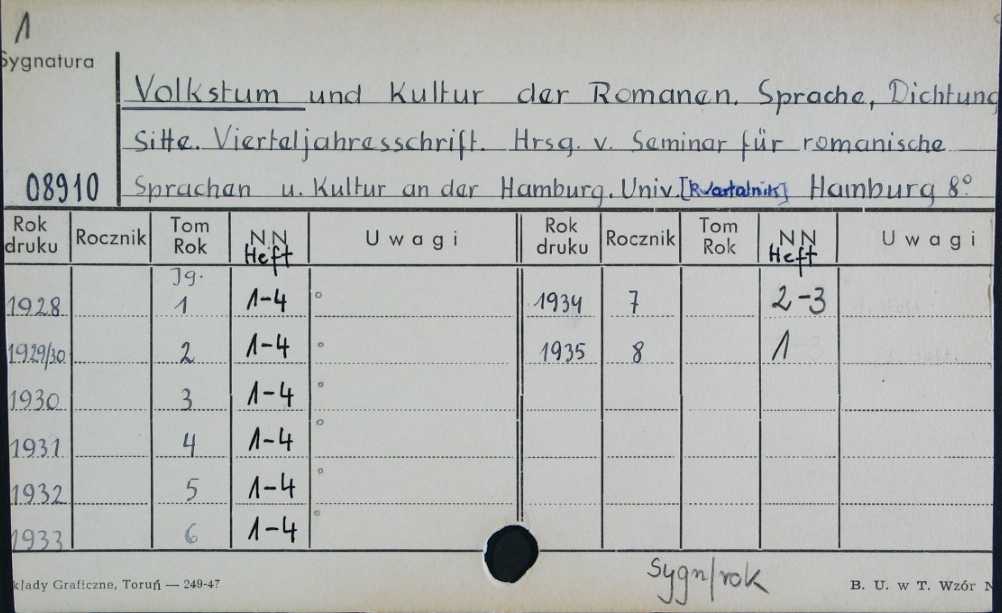 1
Sygnatura
Volkstum und Kultur der Romanen. Sprache, Dichtung
Sitte. Vierteljahresschrift. Hrsg. v. Seminar für romanische
08910 Sprachen u. Kultur an der Hamburg. Univ. [Kwartalnik] Hamburg 8°
Rok druku Rocznik Tom Rok NN Heft Uwagi Rok druku Rocznik Tom Rok NN Heft Uwagi
Jg.
1928 1 1-4 ° 1934 7 2-3
1929/30 2 1-4 ° 1935 8 1
1930 3 1-4 °
1931 4 1-4 °
1932 5 1-4 °
1933 6 1-4 °
kłady Graficzne, Toruń — 249-47 Sygn/rok B. U. w T. Wzór N